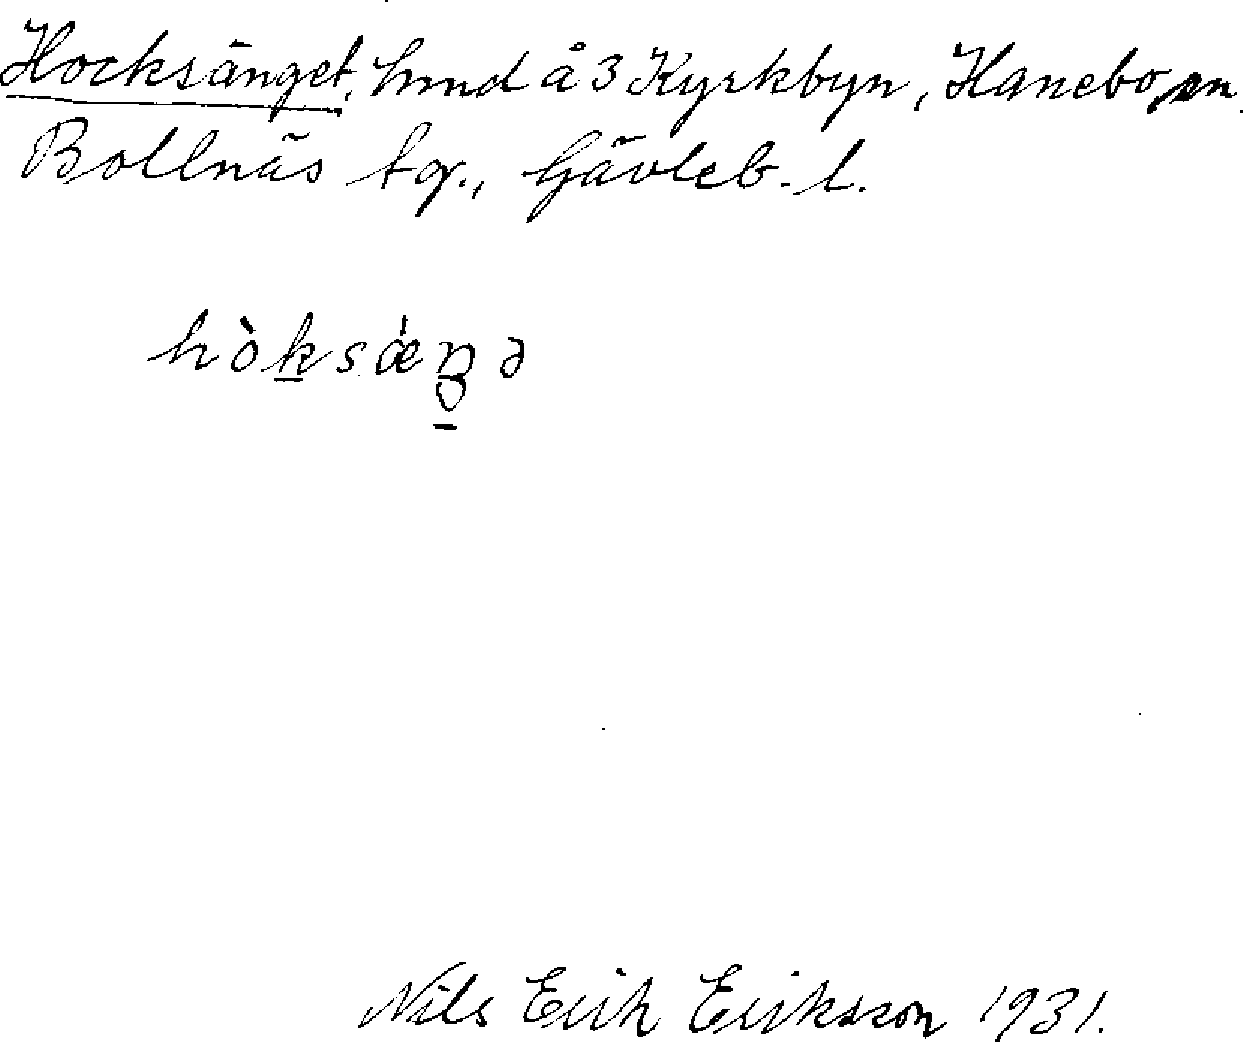 Hocksänget, hmd å 3 Kyrkbyn, Hanebo sn.
Bollnäs tg., Gävleb. l.
hòksǽŋə
Nils Erik Eriksson 1931.